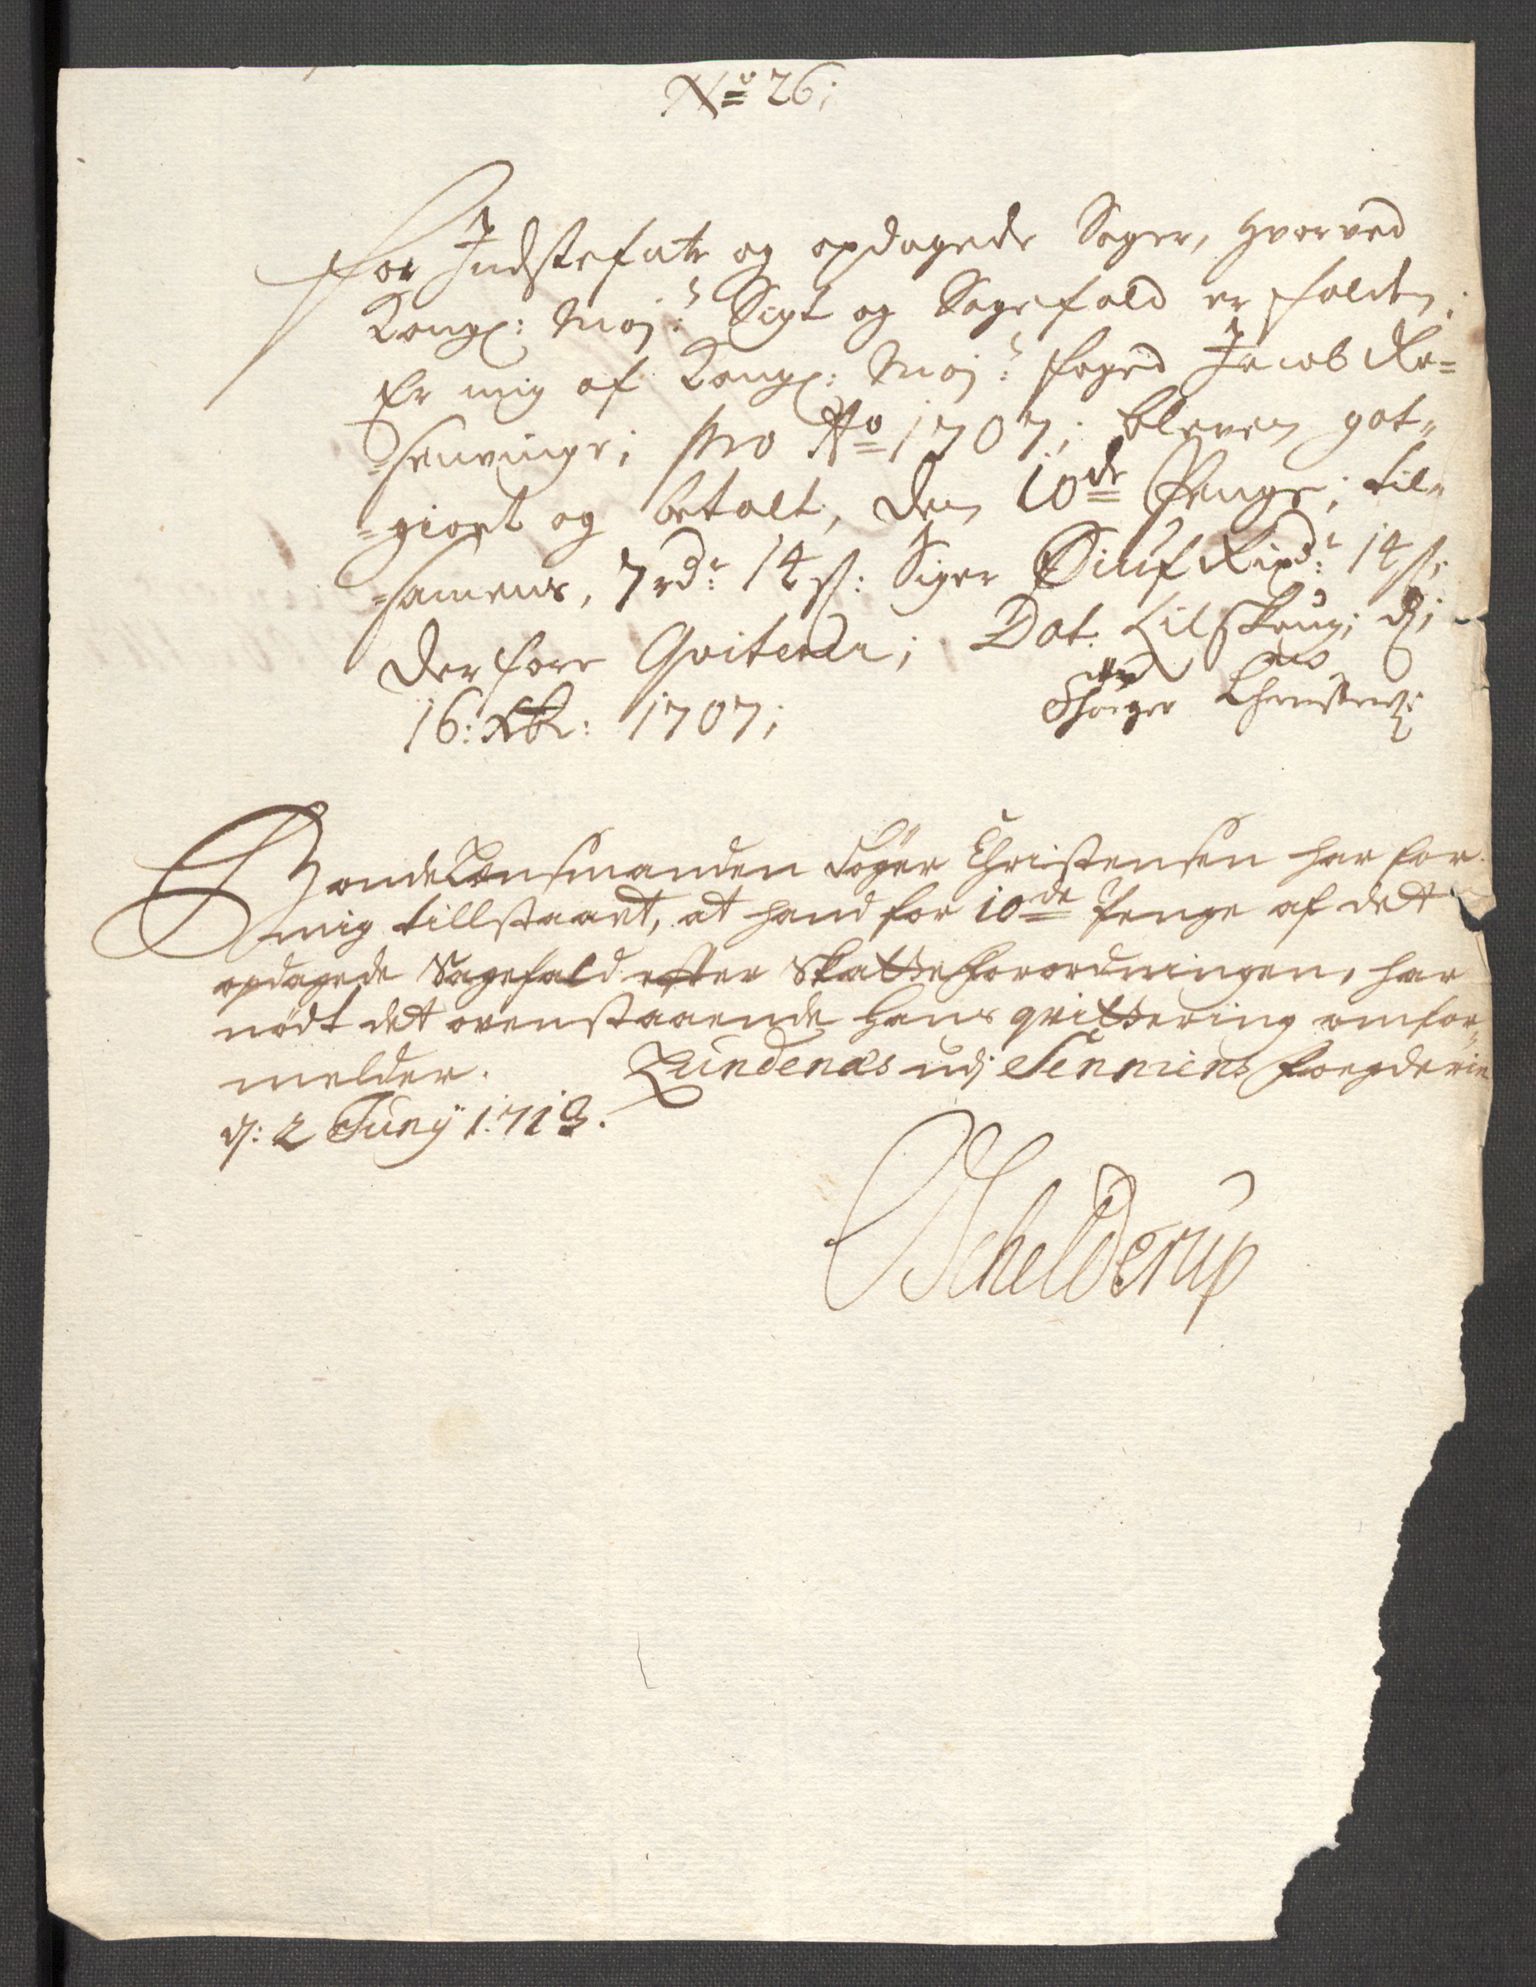 No 26;
For Indstefnte og opdagede Sager, hvorved
Kongl: Maj:s Sigt og Sagefald er falden;
Er mig af Kongl: Maj:s foged Jacob Ro=
=senvinge; pro Ao 1707; bleven got=
=giort og betalt, den 10de Penge; til=
=samens, 7 rdr 14 s: Siger Siuf Rixdr: 14 s;
derfore Qviterer; Dat. Lilskrug; d;
16: Xbr: 1707; Christens:
Bonde Lensmanden Christensen har for
mig tillstaaet, at hand for 10de Penge af det
opdagede Sagefald efter Skatteforordningen, har
nødt det ovenstaaende hans qvittering omfor,,
melder. Lundenæs udj Senniens fogderie
d: 2 Junij 1713.
Schelderup